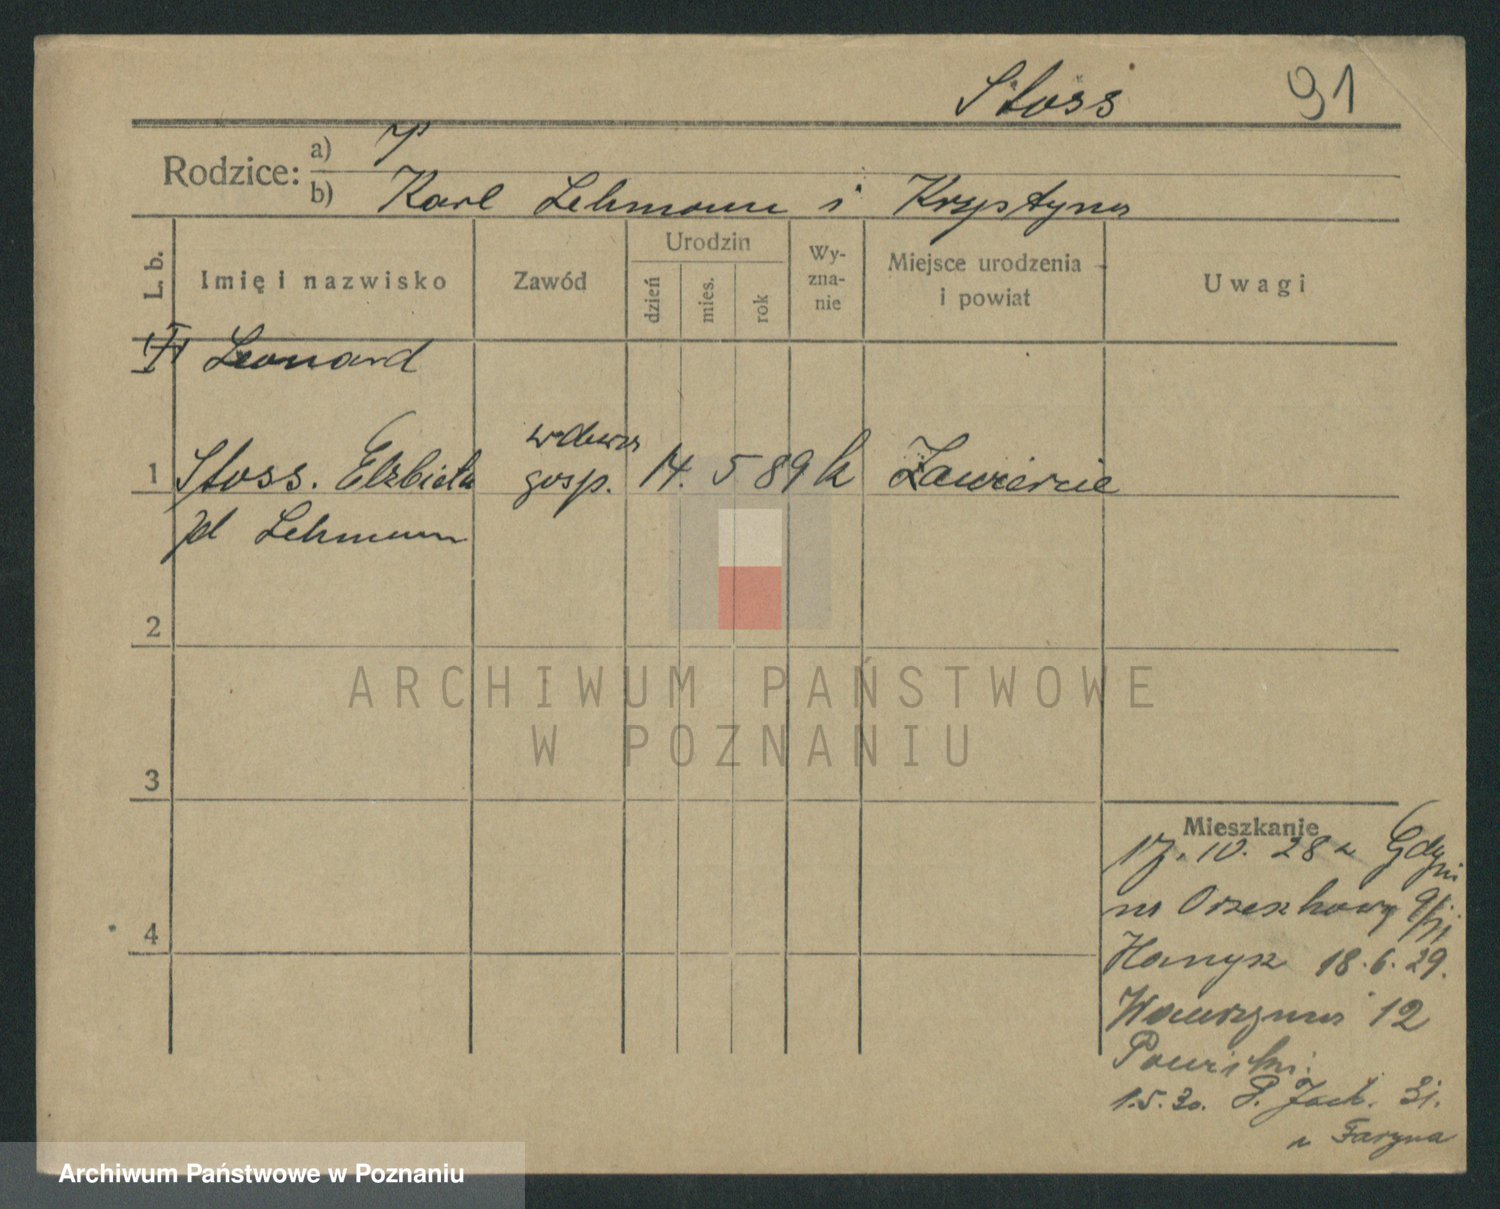 Stoss 91
Rodzice: a)
b) Karl Lehmann i Krystyna
L. b. Imię i nazwisko Zawód Urodzin dzień mies. rok Wy-zna-nie Miejsce urodzenia i powiat Uwagi
Leonard
wdowa
1 Stoss. Elzbieta gosp. 14. 5 89 k Zawiercie
Lehmann
2
3
4
Mieszkanie
17. 10. 28 z Gdyni
na Orzeszkowy 9/
18. 6. 29.
Wawrzynia 12
1.5.30. P. Jack. 31.
u Faryna
ARCHIWUM PAŃSTWOWE
W POZNANIU
Archiwum Państwowe w Poznaniu